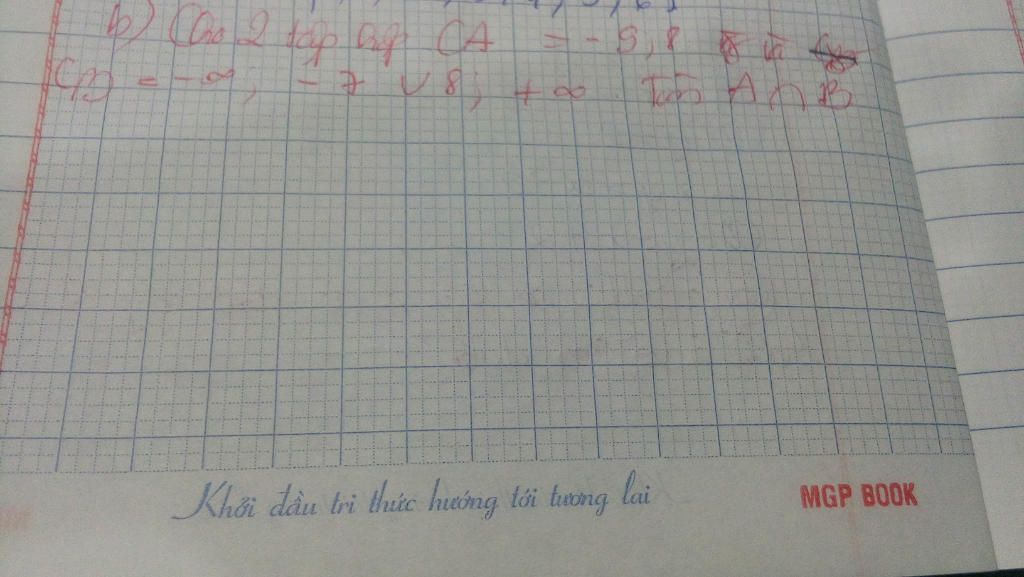 4, 5, 6}
b) Cho 2 tập hợp CA = -5, 8 và
CB = -∞; -7 ∪ 8; +∞. Tìm A ∩ B
Khởi đầu tri thức hướng tới tương lai
MGP BOOK